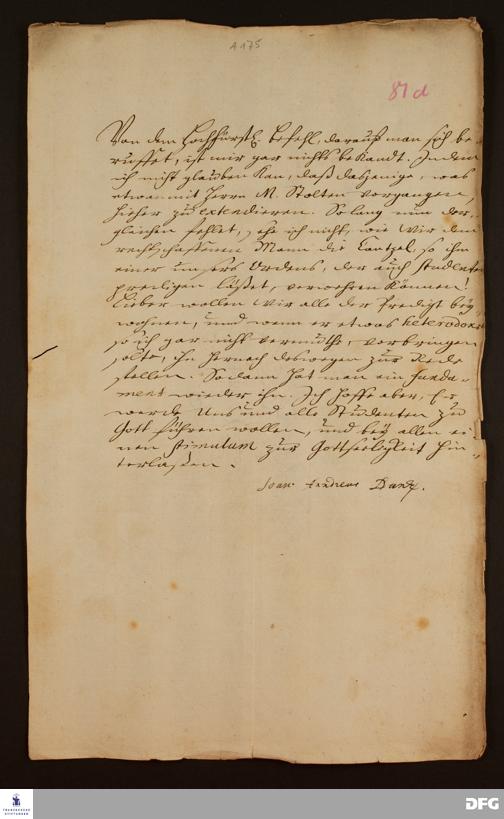 A 175
87 d
Von dem Hochfürstl. Befehl, darauf man sich be-
ruffet, ist mir gar nichts bekandt. Indem
ich nicht glauben kan, daß dasjenige, was
etwa mit Herrn M. Stolten vorgangen,
hieher zu extendieren. So lang nun der-
gleichen fehlet, sehe ich nicht, wie wir dem
rechtschaffenen Mann die Cantzel, so ihm
einer unsers Ordens, der auch studenten
predigen läßet, verwehren können!
Lieber wollen wir alle der Predigt bey
wohnen, und wenn er etwas heterodoxes
so ich gar nicht vermuthe, vorbringen
solte, ihn hernach deswegen zur Rede
stellen. Sodann hat man ein funda-
ment wieder ihn. Ich hoffe aber, Er
werde uns und alle Studenten zu
Gott führen wollen, und bey allen ei-
nen stimulum zur Gottseeligkeit hin-
terlaßen.
Joan Andreas Danz.
FRANCKESCHE STIFTUNGEN
DFG